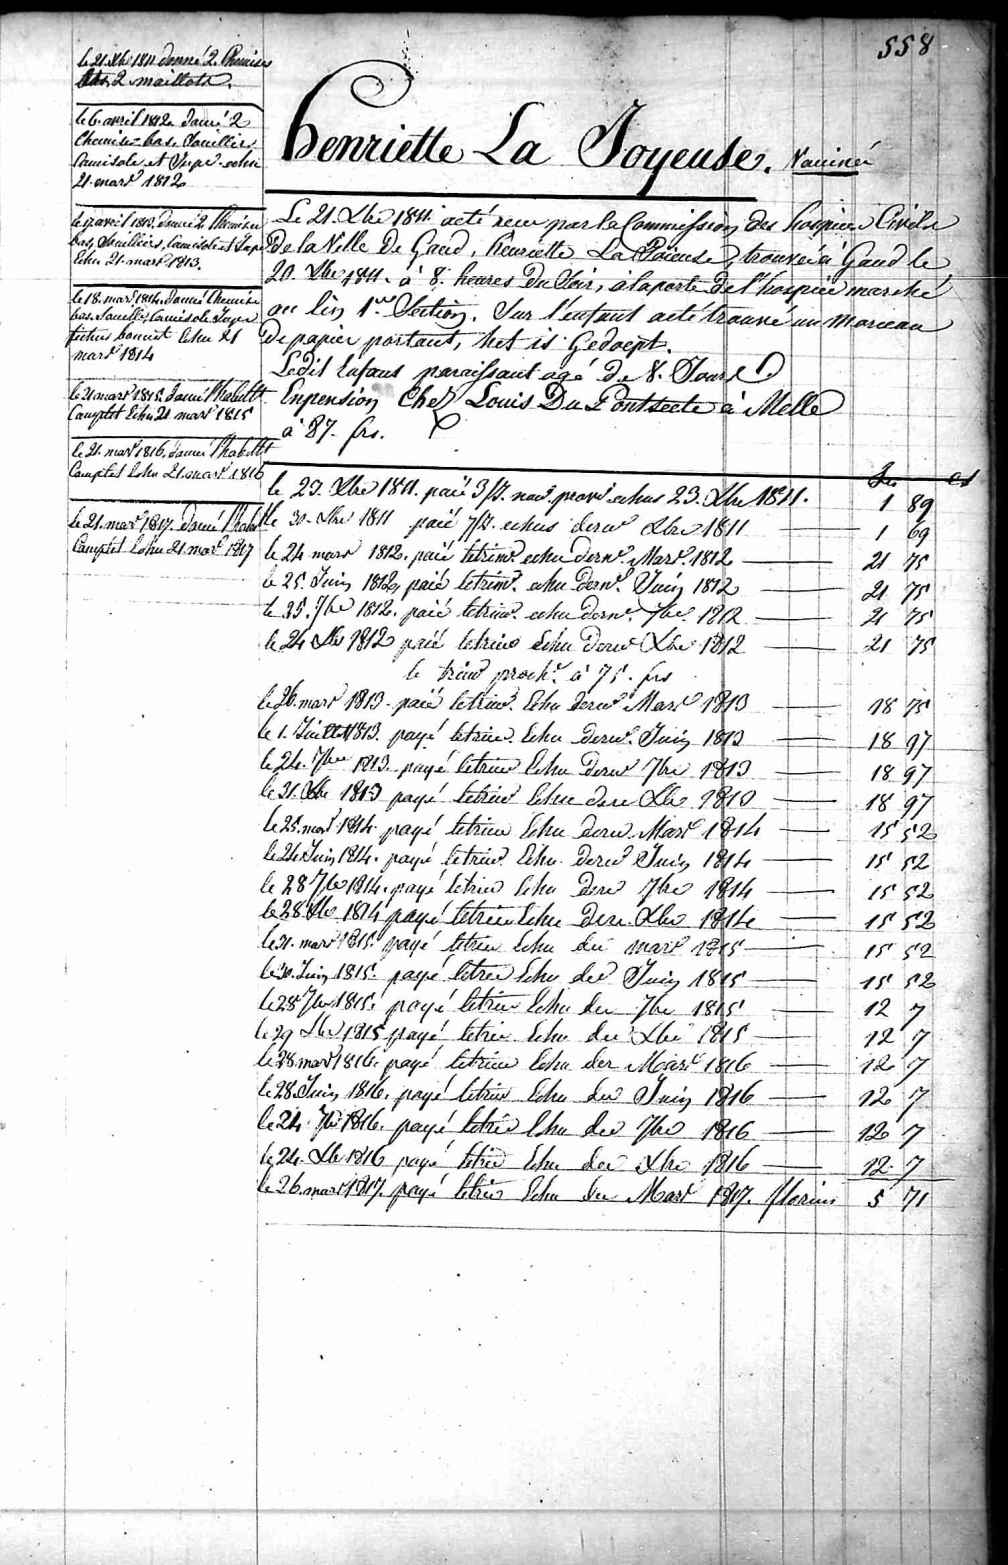 558
le 21. Xbre 1811 donné 2. Chemises
2 maillots.
le 6. avril 1812. donné 2
Chemise = bas. Souilliers
Camisole et Jupe. echu
21. mars 1812
le avril 1813. donné 2 Chemises
bas, Souilliers, Camisole et Jupe
Echu 21. mars 1813.
le 18. mars 1814. donné Chemise
bas. Souillies Camisole Jupe
fichu bonnet Echu 21
mars 1814
le 21 mars 1815. donné l'habillt
Complet Echu 21 mars 1815
le 21. mars 1816. donné l'habillt
Complet Echu 21. mars 1816
le 21. mars 1817. donné l'habillt
Complet Echu 21. mars 1817
Henriette La Joyeuse. Vacciné
Le 21. Xbre 1811. a eté recu par la Commission des hospices Civils
De la Ville De Gand, henriette La Joieuse, trouvée à Gand le
20. Xbre 1811. à 8. heures Du Soir, a la porte De l'hospice marché
au lin 1re Section. Sur l'enfant a eté trouvé un Morceau
De papier portant, het is Gedoept.
Ledit Enfant paraissant agé De 8. Jours
En pension Chez Louis Du Pontseele à Melle
à 87. frs.
frs ct
le 23. Xbre 1811. paié 3/2. echus 23. Xbre 1811. 1 89
le 30. Xbre 1811 paié 7/2. echus dernr Xbre 1811 1 69
le 24 mars 1812. paié le trimr. echu dernr. Mars. 1812 21 75
le 25. Juin 1812, paié le trimr. echu dernr. Juin 1812 21 75
le 25. 7bre 1812. paié le trimr. echu dernr. 7bre. 1812 21 75
le 24 Xbre 1812 paié le trimr echu dernr Xbre 1812 21 75
le trimr proche. à 75. frs
le 26. mars 1813. paié le trimr. Echu dernr. Mars 1813 18 75
le 1. Juillet 1813. payé le trimr. Echu dernr. Juin 1813 18 97
le 24. 7bre 1813. payé le trimr Echu dernr 7bre 1813 18 97
le 31. Xbre 1813 payé le trimr Echu dern Xbre 1813 18 97
le 25. mars 1814. payé le trimr Echu dernr. Mars 1814 15 52
le 24. Juin 1814. payé le trimr. Echu dernr Juin 1814 15 52
le 28 7bre 1814. payé le trimr Echu dern 7bre 1814 15 52
le 28 Xbre 1814 payé le trimr Echu dern Xbre 1814 15 52
le 21. mars 1815. payé le trim Echu der mars 1815 15 52
le 30. Juin 1815. payé le trim Echu der Juin 1815 15 52
le 28 7bre 1815. payé le trim Echu der 7bre 1815 12 7
le 29 Xbre 1815 payé le trim Echu der Xbre 1815 12 7
le 28 mars 1816. payé le trim Echu der Mars 1816 12 7
le 28. Juin 1816. payé le trim Echu der Juin 1816 12 7
le 24. 7bre 1816. payé le trim Echu der 7bre 1816 12 7
le 24. Xbre 1816 payé le trim Echu der Xbre 1816 12 7
le 26. mars 1817. payé le trim Echu der Mars 1817. florins 5 71